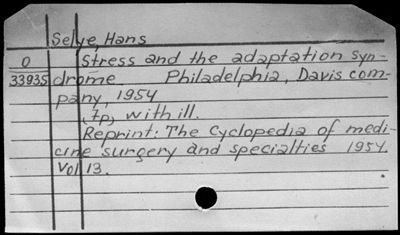 Selye, Hans
0 Stress and the adaptation syn-
33935 drome Philadelphia, Davis com-
pany, 1954
,7p, with ill.
Reprint: The Cyclopedia of medi-
cine surgery and specialties 1954.
Vol 13.